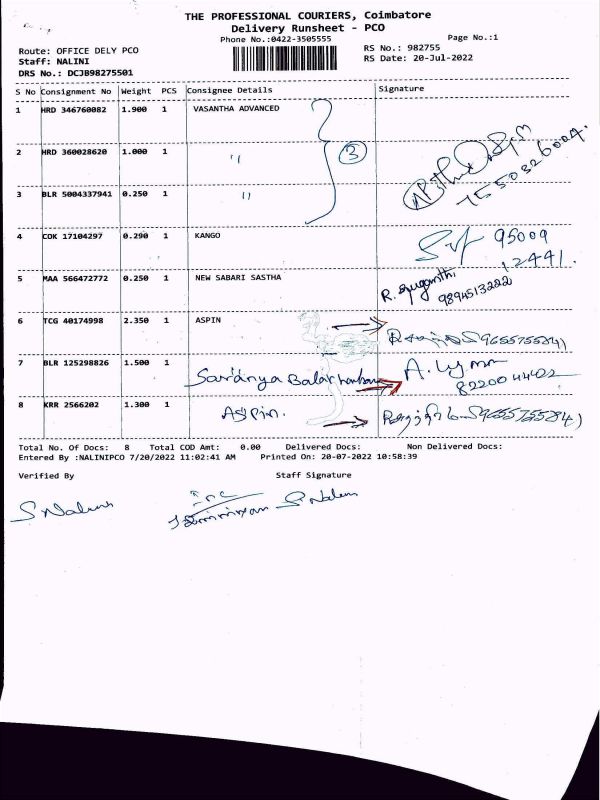 THE PROFESSIONAL COURIERS, Coimbatore
Delivery Runsheet - PCO
Phone No.:0422-3505555
Page No.:1
Route: OFFICE DELY PCO
RS No.: 982755
Staff: NALINI
RS Date: 20-Jul-2022
DRS No.: DCJB98275501
S No Consignment No Weight PCS Consignee Details Signature
1 HRD 346760082 1.900 1 VASANTHA ADVANCED
2 HRD 360028620 1.000 1 " 3
7550326004.
3 BLR 5004337941 0.250 1 "
4 COK 17104297 0.290 1 KANGO 95009
12441.
5 MAA 566472772 0.250 1 NEW SABARI SASTHA R. Suganthi
9894513222
6 TCG 40174998 2.350 1 ASPIN
9655755841
7 BLR 125298826 1.500 1 Saranya A.
8220044402
8 KRR 2566202 1.300 1 Aspin. 9655755841
Total No. Of Docs: 8 Total COD Amt: 0.00 Delivered Docs: Non Delivered Docs:
Entered By :NALINIPCO 7/20/2022 11:02:41 AM Printed On: 20-07-2022 10:58:39
Verified By Staff Signature
S Nalini S Nalini